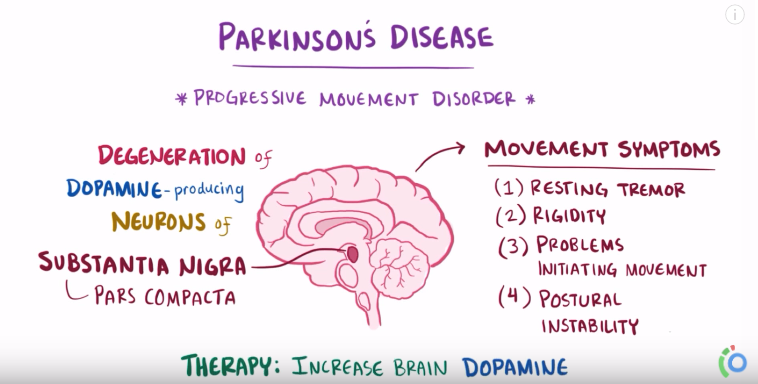 PARKINSON'S DISEASE
* PROGRESSIVE MOVEMENT DISORDER *
DEGENERATION of
DOPAMINE-producing
NEURONS of
SUBSTANTIA NIGRA
PARS COMPACTA
MOVEMENT SYMPTOMS
(1) RESTING TREMOR
(2) RIGIDITY
(3) PROBLEMS
INITIATING MOVEMENT
(4) POSTURAL
INSTABILITY
THERAPY: INCREASE BRAIN DOPAMINE